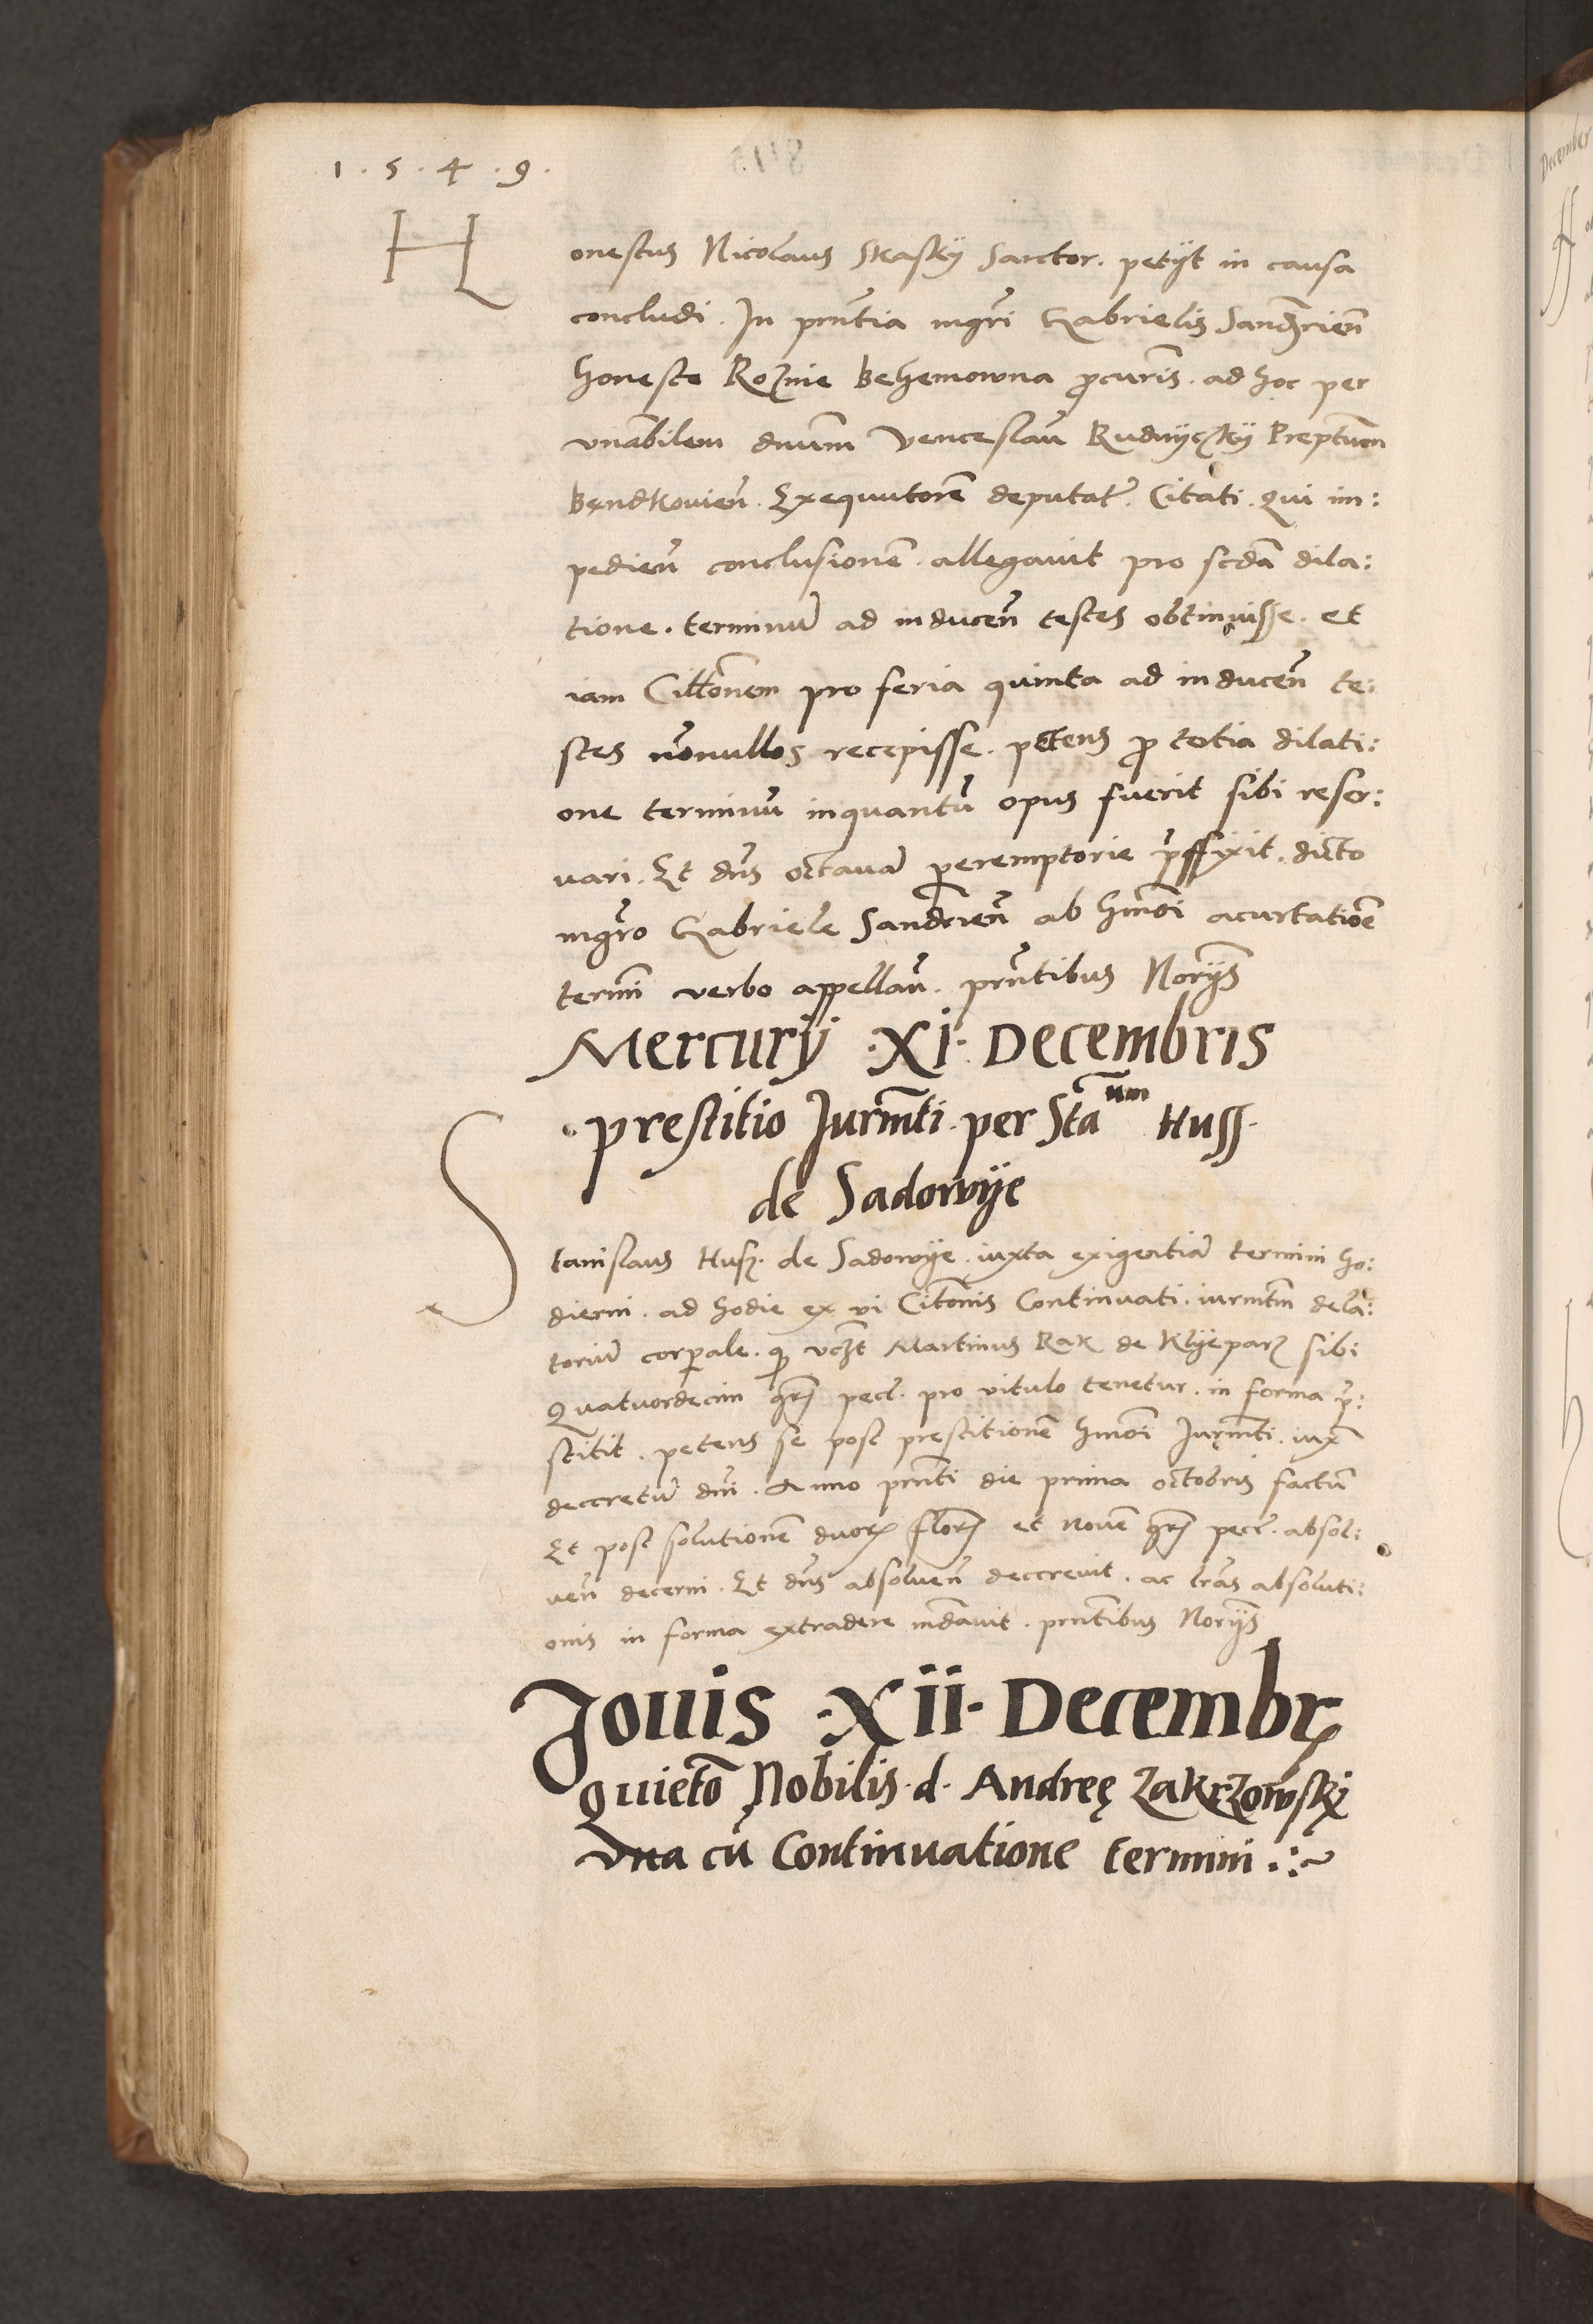 1 . 5 . 4 . 9 .
Honestus Nicolaus Skasky Sarctor. petijt in causa
concludi. In pn̄tia mgr̄i Gabrielis Sandr̄ien̄
honeste Rozinie Behemowna p̄curis̄. ad hoc per
vnābilem dnūm Venceslaū Rudnyczky Preptum̄
Bendkovien̄. Exequutorē deputat̄. Citati. Qui im:
pedien̄ conclusionē. allegavit pro scdā dila:
tione. terminū ad inducen̄ testes obtinuisse. et
iam Cittōnem pro feria quinta ad inducen̄ te:
stes nōnullos recepisse. petens p̄ tertia dilati:
one terminū inquantū opus fuerit sibi reser:
vari. Et dn̄s octavā peremptorie p̄ffixit. dicto
mgr̄o Gabriele Sandr̄ien̄ ab hmōi acurtatiōe
termīni verbo appellan̄. pn̄tibus Norijs̄
Mercurij ·XI· Decembris
·prestitio Jurm̄ti· per Sta^num Huss·
de Sadowije
Stanislaus Husz. de Sadowije. iuxta exigentiā termini ho:
dierni. ad hodie ex vi Citōnis Continuati. iurmtm̄ dela:
toriū corporale. q̄ vcz̄t Martinus Rak de Klyeparz sibi
Quatuordecim gr̄s pecc̄. pro vitulo tenetur. in forma p̄:
stitit. petens se post prestitionē hmōi Jurm̄ti. iux̄
decretū dn̄i. Anno pn̄ti die prima octobris factū
Et post solutionē duorꝝ florꝝ et novē gr̄s pecc̄. absol:
ven̄ decerni. Et dn̄s absolven̄ decrevit. ac lrā̄s absoluti:
onis in forma extradere mdāvit. pn̄tibus Norijs̄
Jovis ·Xii· Decembrꝭ
Quietō Nobilis·d· Andreę Zakrzowskÿ
Vna cū Continuatione termini ·:~